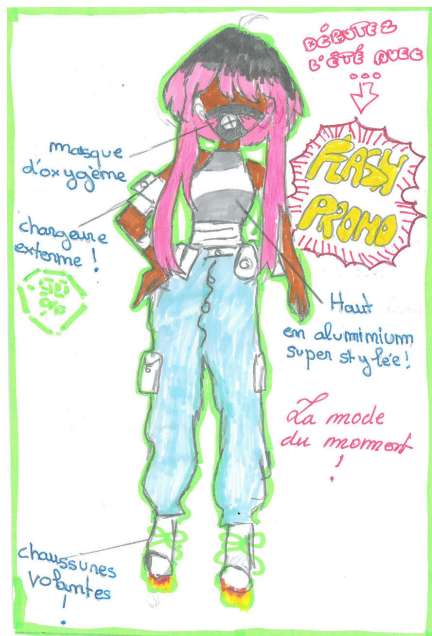 DÉBUTEZ
L'ÉTÉ AVEC
...
FLASH
PROMO
masque
d'oxygène
chargeure
externe !
50
%
Haut
en aluminium
super stylée !
La mode
du moment
!
chaussures
volantes
!